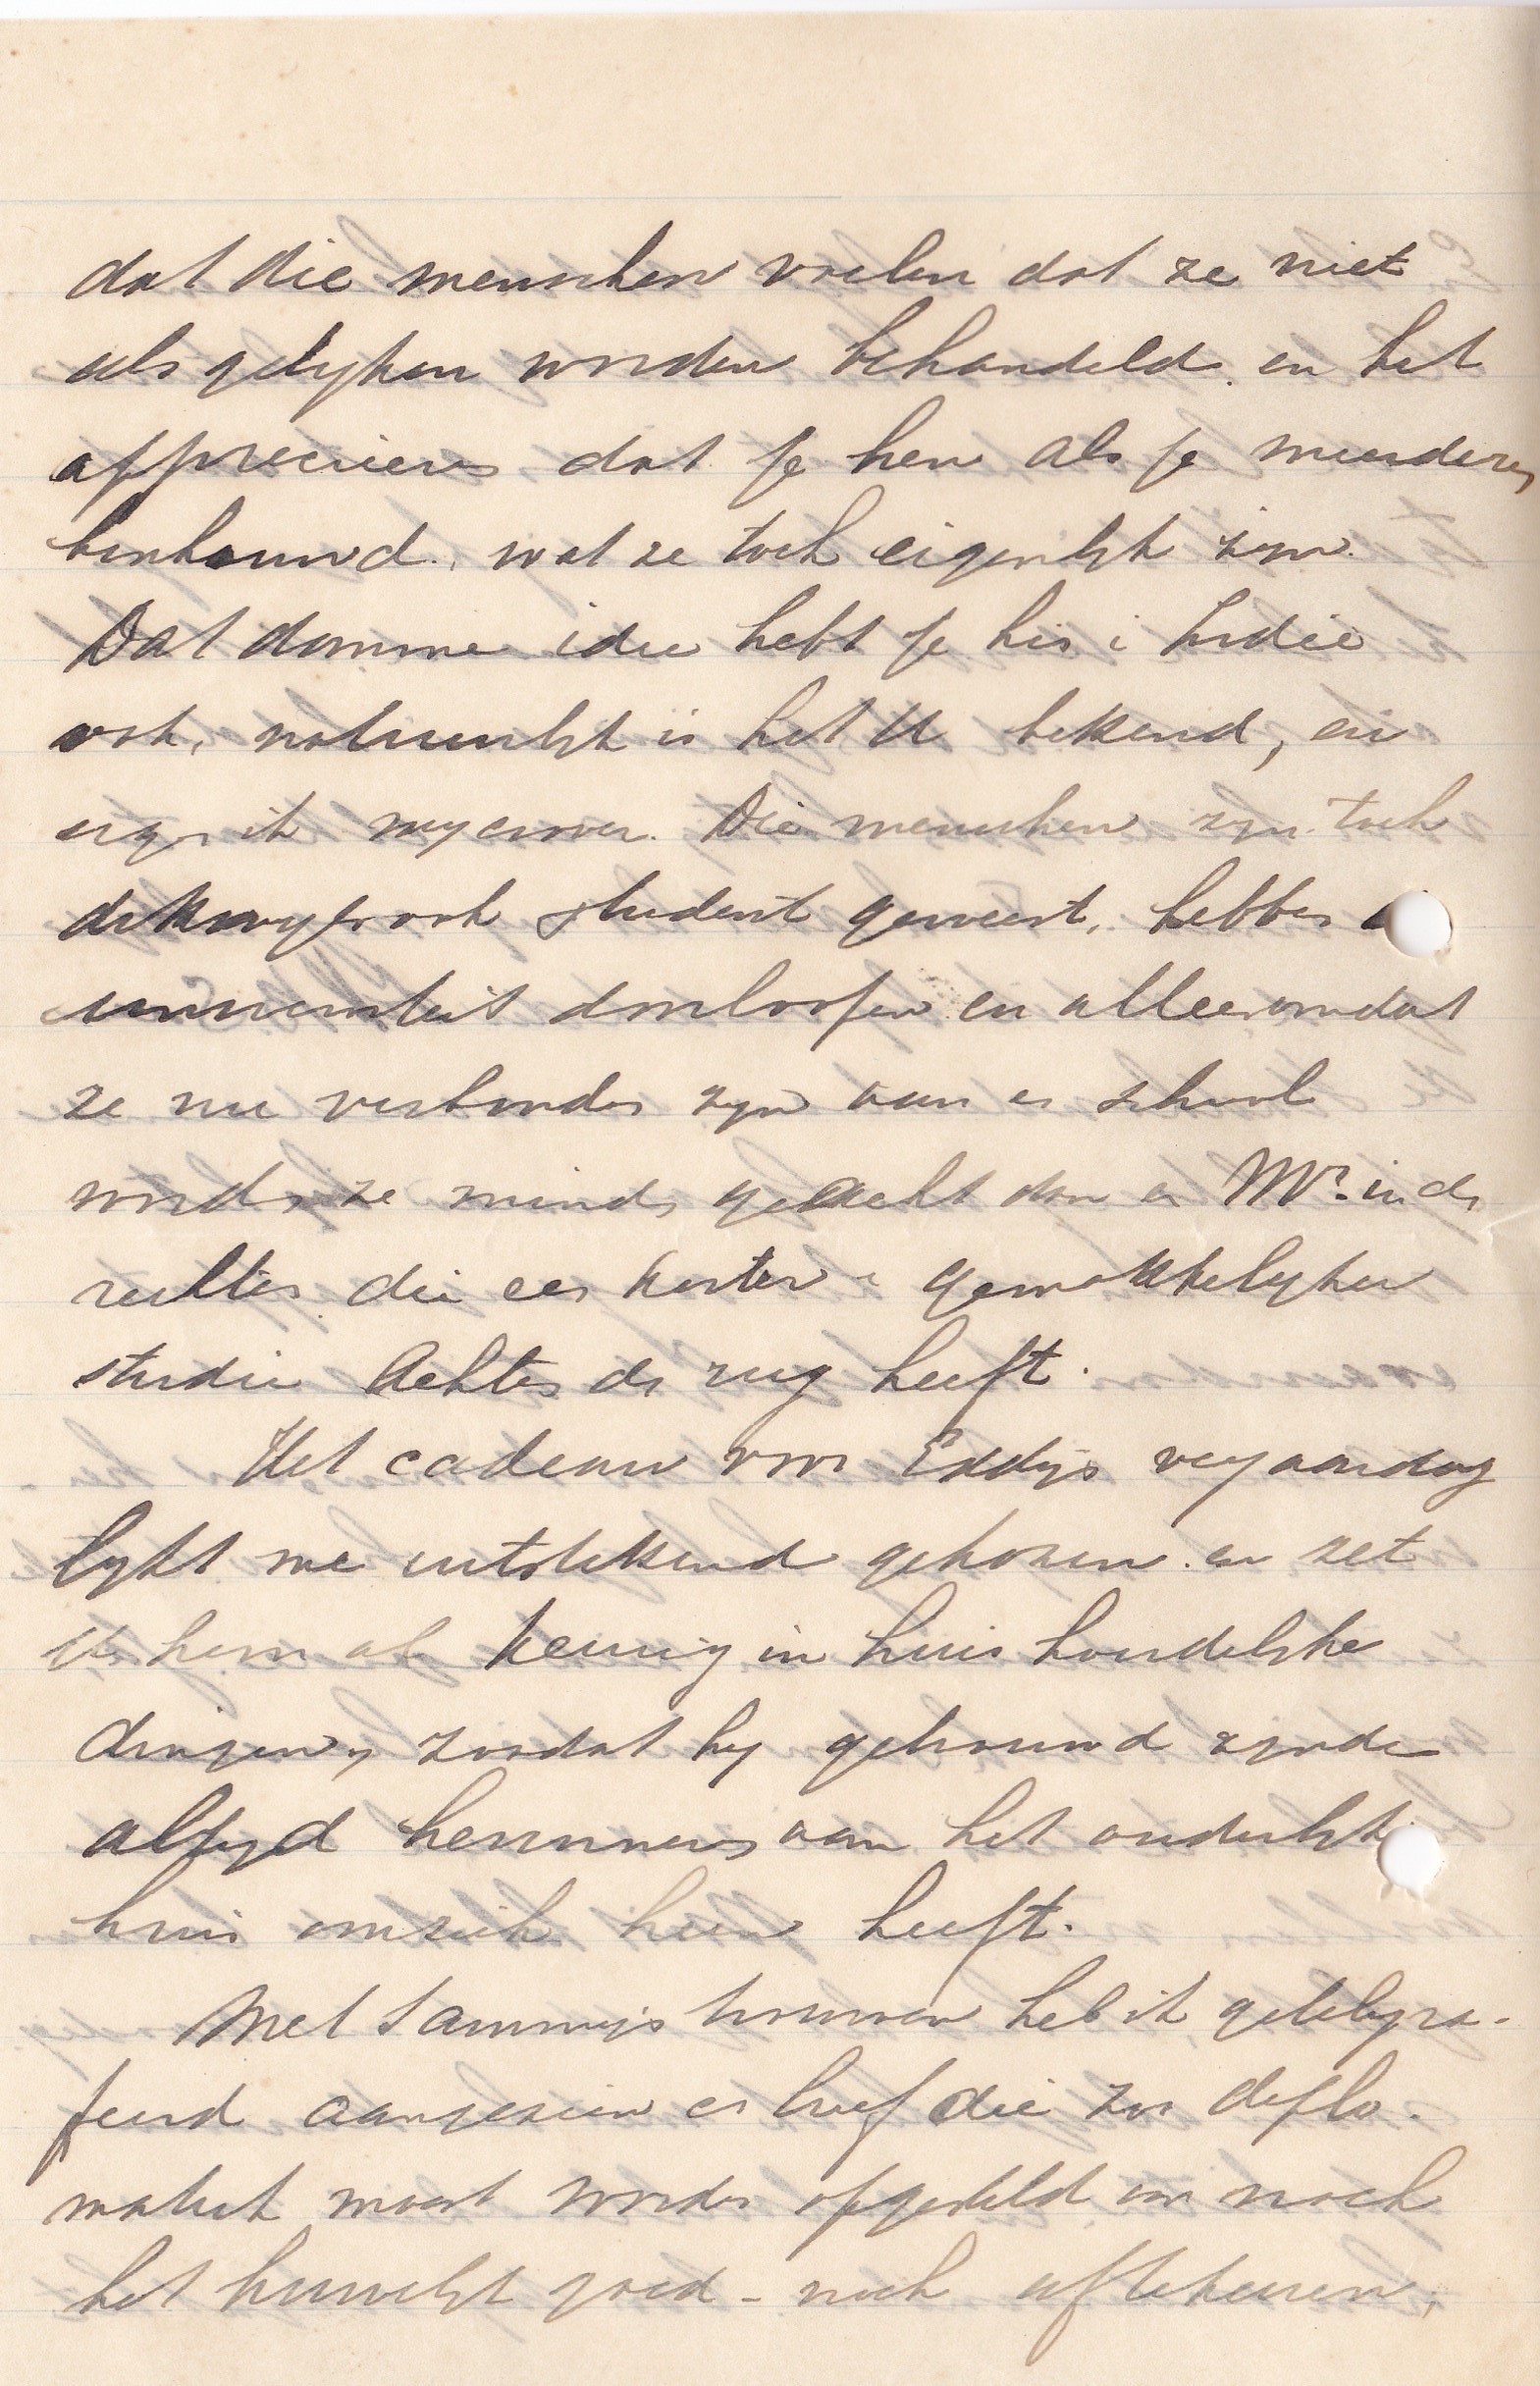 dat die menschen voelen dat ze niet
als gelyken worden behandeld. en het
apprecieeren dat je hen als je meerderen
beschouwd. wat ze toch eigenlyk zyn.
Dat domme idee hebt je hier i Indië
ook, natuurlyk is het U bekend, en
erger ik my erover. Die menschen zyn toch
dikwyls ook student geweest, hebben
universiteit doorloopen en alleen omdat
ze nu verbonden zyn aan een school
worden ze minder geacht dan een Mr. in de
rechten die een korter en gemakkelyker
studie Achter de rug heeft.
Het cadeau voor Eddys verjaardag
lykt me uitstekend gekozen. en zet
U hem al keurig in huishoudelyke
dingen, zoodat hy getrouwd zynde
altyd herinnering aan het ouderlyk
huis om zich heen heeft.
Met Sammys trouwen heb ik getelegra-
feerd aangezien er brief die zoo diplo-
matiek moest worden opgesteld om noch
het huwelyk goed - noch af te keuren,